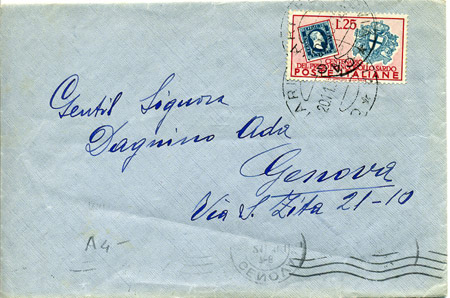 L.25
CENTEN
DEL PRIMO
LLO SARDO
POSTE ITALIANE
Gentil Signora
Dagnino Ada
Genova
Via S. Zita 21-10
A4-
GENOVA